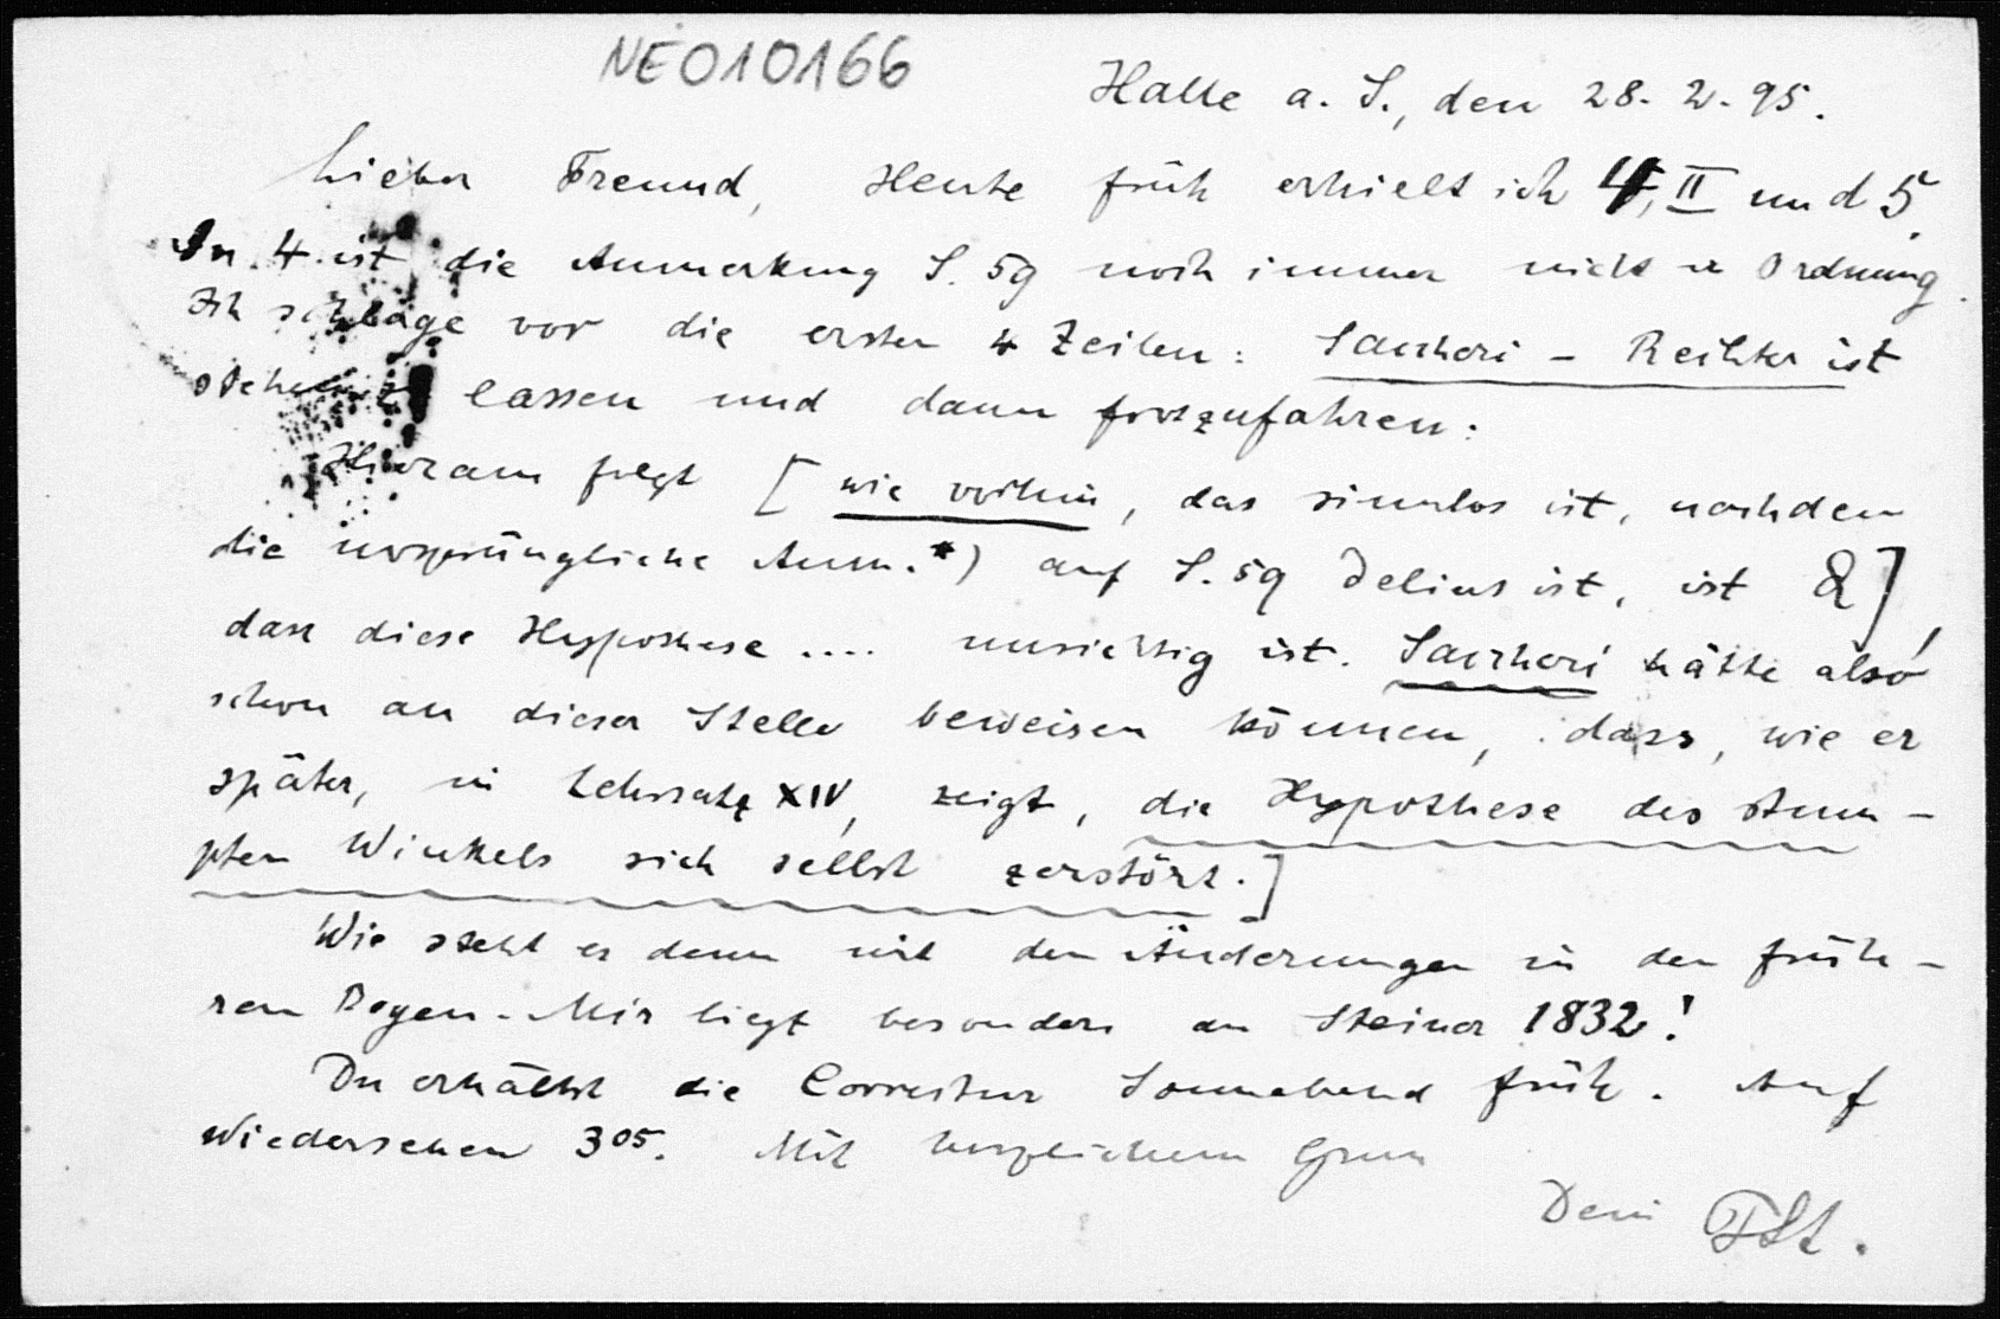 NE010166
Halle a. S., den 28. 2. 95.
Lieber Freund, Heute früh erhielt ich 4, II und 5.
In 4 ist die Anmerkung S. 59 noch immer nicht in Ordnung.
Ich schlage vor die ersten 4 Zeilen: Saccheri – Rechter ist
stehen zu lassen und dann fortzufahren:
Hieraus folgt [wie vorhin, das sinnlos ist, nachdem
die ursprüngliche Anm. *) auf S. 59 Delius ist, ist],
dass diese Hypothese .... unrichtig ist. Saccheri hätte also
schon an dieser Stelle beweisen können, dass, wie er
später, in Lehrsatz XIV, zeigt, die Hypothese des stum-
pfen Winkels sich selbst zerstört.]
Wie steht es denn mit den Änderungen in den frühe-
ren Bogen. Mir liegt besonders an Steiner 1832!
Du erhältst die Correctur Sonnabend früh. Auf
Wiedersehen 3 05. Mit herzlichem Gruss
Dein FSt.